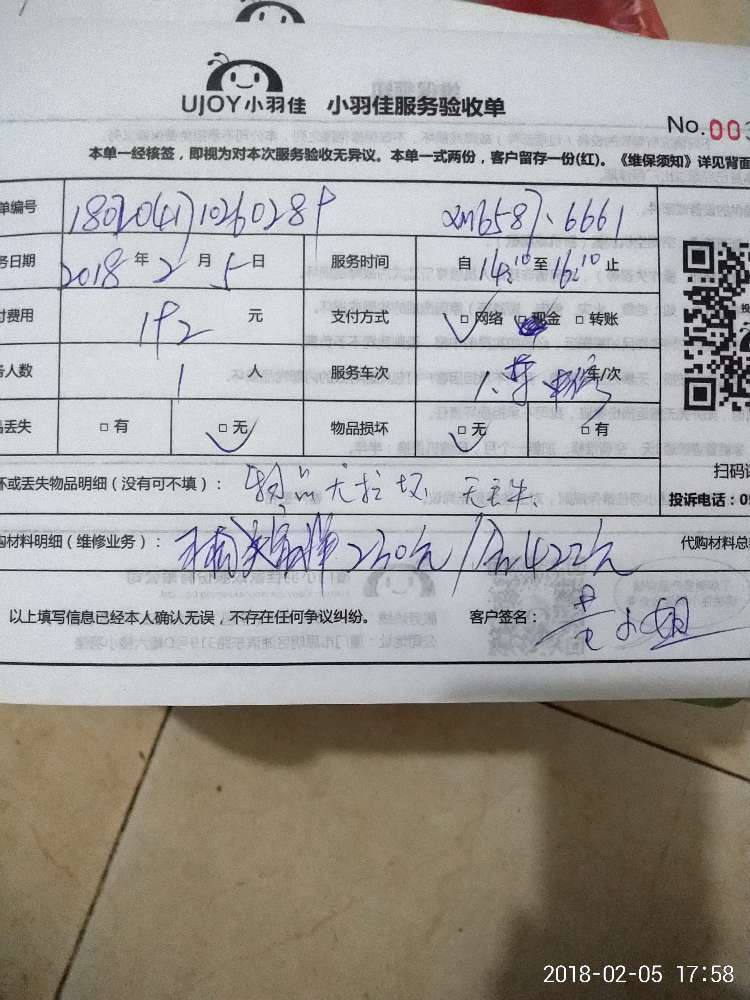 UJOY小羽佳 小羽佳服务验收单
No.00
本单一经核签，即视为对本次服务验收无异议。本单一式两份，客户留存一份(红)。《维保须知》详见背面
单编号 xm6587.6661
务日期 2018年2月5日 服务时间 自14:10至16:10止
付费用 192元 支付方式 □网络 □现金 □转账
务人数 1人 服务车次 车/次
品丢失 □有 □无 物品损坏 □无 □有
坏或丢失物品明细（没有可不填）： 物品无损坏 无丢失
扫码
投诉电话：05
购材料明细（维修业务）： 230元/合422元 代购材料总
以上填写信息已经本人确认无误，不存在任何争议纠纷。 客户签名： 小姐
2018-02-05 17:58